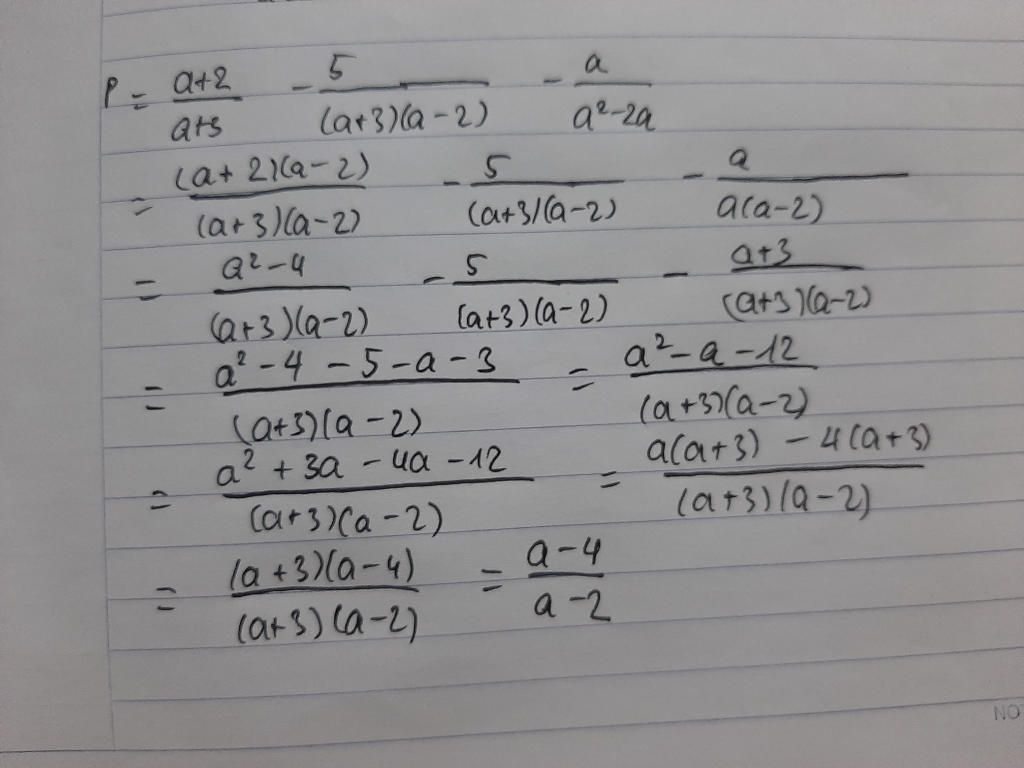 P = (a+2)/(a+3) - 5/((a+3)(a-2)) - a/(a²-2a)
= ((a+2)(a-2))/((a+3)(a-2)) - 5/((a+3)(a-2)) - a/(a(a-2))
= (a²-4)/((a+3)(a-2)) - 5/((a+3)(a-2)) - (a+3)/((a+3)(a-2))
= (a²-4-5-a-3)/((a+3)(a-2)) = (a²-a-12)/((a+3)(a-2))
= (a²+3a-4a-12)/((a+3)(a-2)) = (a(a+3)-4(a+3))/((a+3)(a-2))
= ((a+3)(a-4))/((a+3)(a-2)) = (a-4)/(a-2)
NO